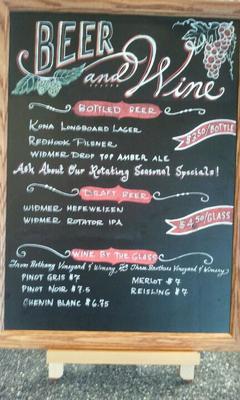 BEER
and Wine
BOTTLED BEER
KONA LONGBOARD LAGER
$3.50/BOTTLE
REDHOOK PILSNER
WIDMER DROP TOP AMBER ALE
Ask About Our Rotating Seasonal Specials!
DRAFT BEER
WIDMER HEFEWEIZEN
$4.50/GLASS
WIDMER ROTATOR IPA
WINE BY THE GLASS
From Bethany Vineyard & Winery, Three Brothers Vineyard & Winery
PINOT GRIS $7
MERLOT $7
PINOT NOIR $7.5
REISLING $7
CHENIN BLANC $6.75